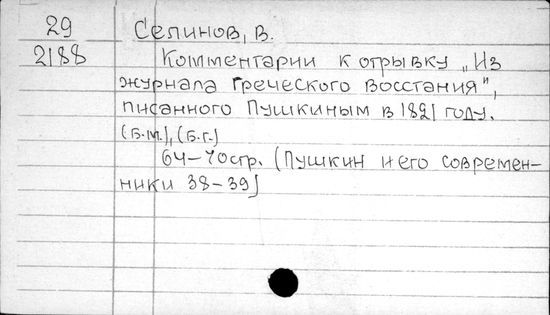 29 Селинов, В.
2188 Комментарии к отрывку „Из
журнала греческого восстания",
писанного Пушкиным в 1821 году.
(Б.м.), (Б.г.)
64-70стр. (Пушкин и его современ-
ники 38-39)